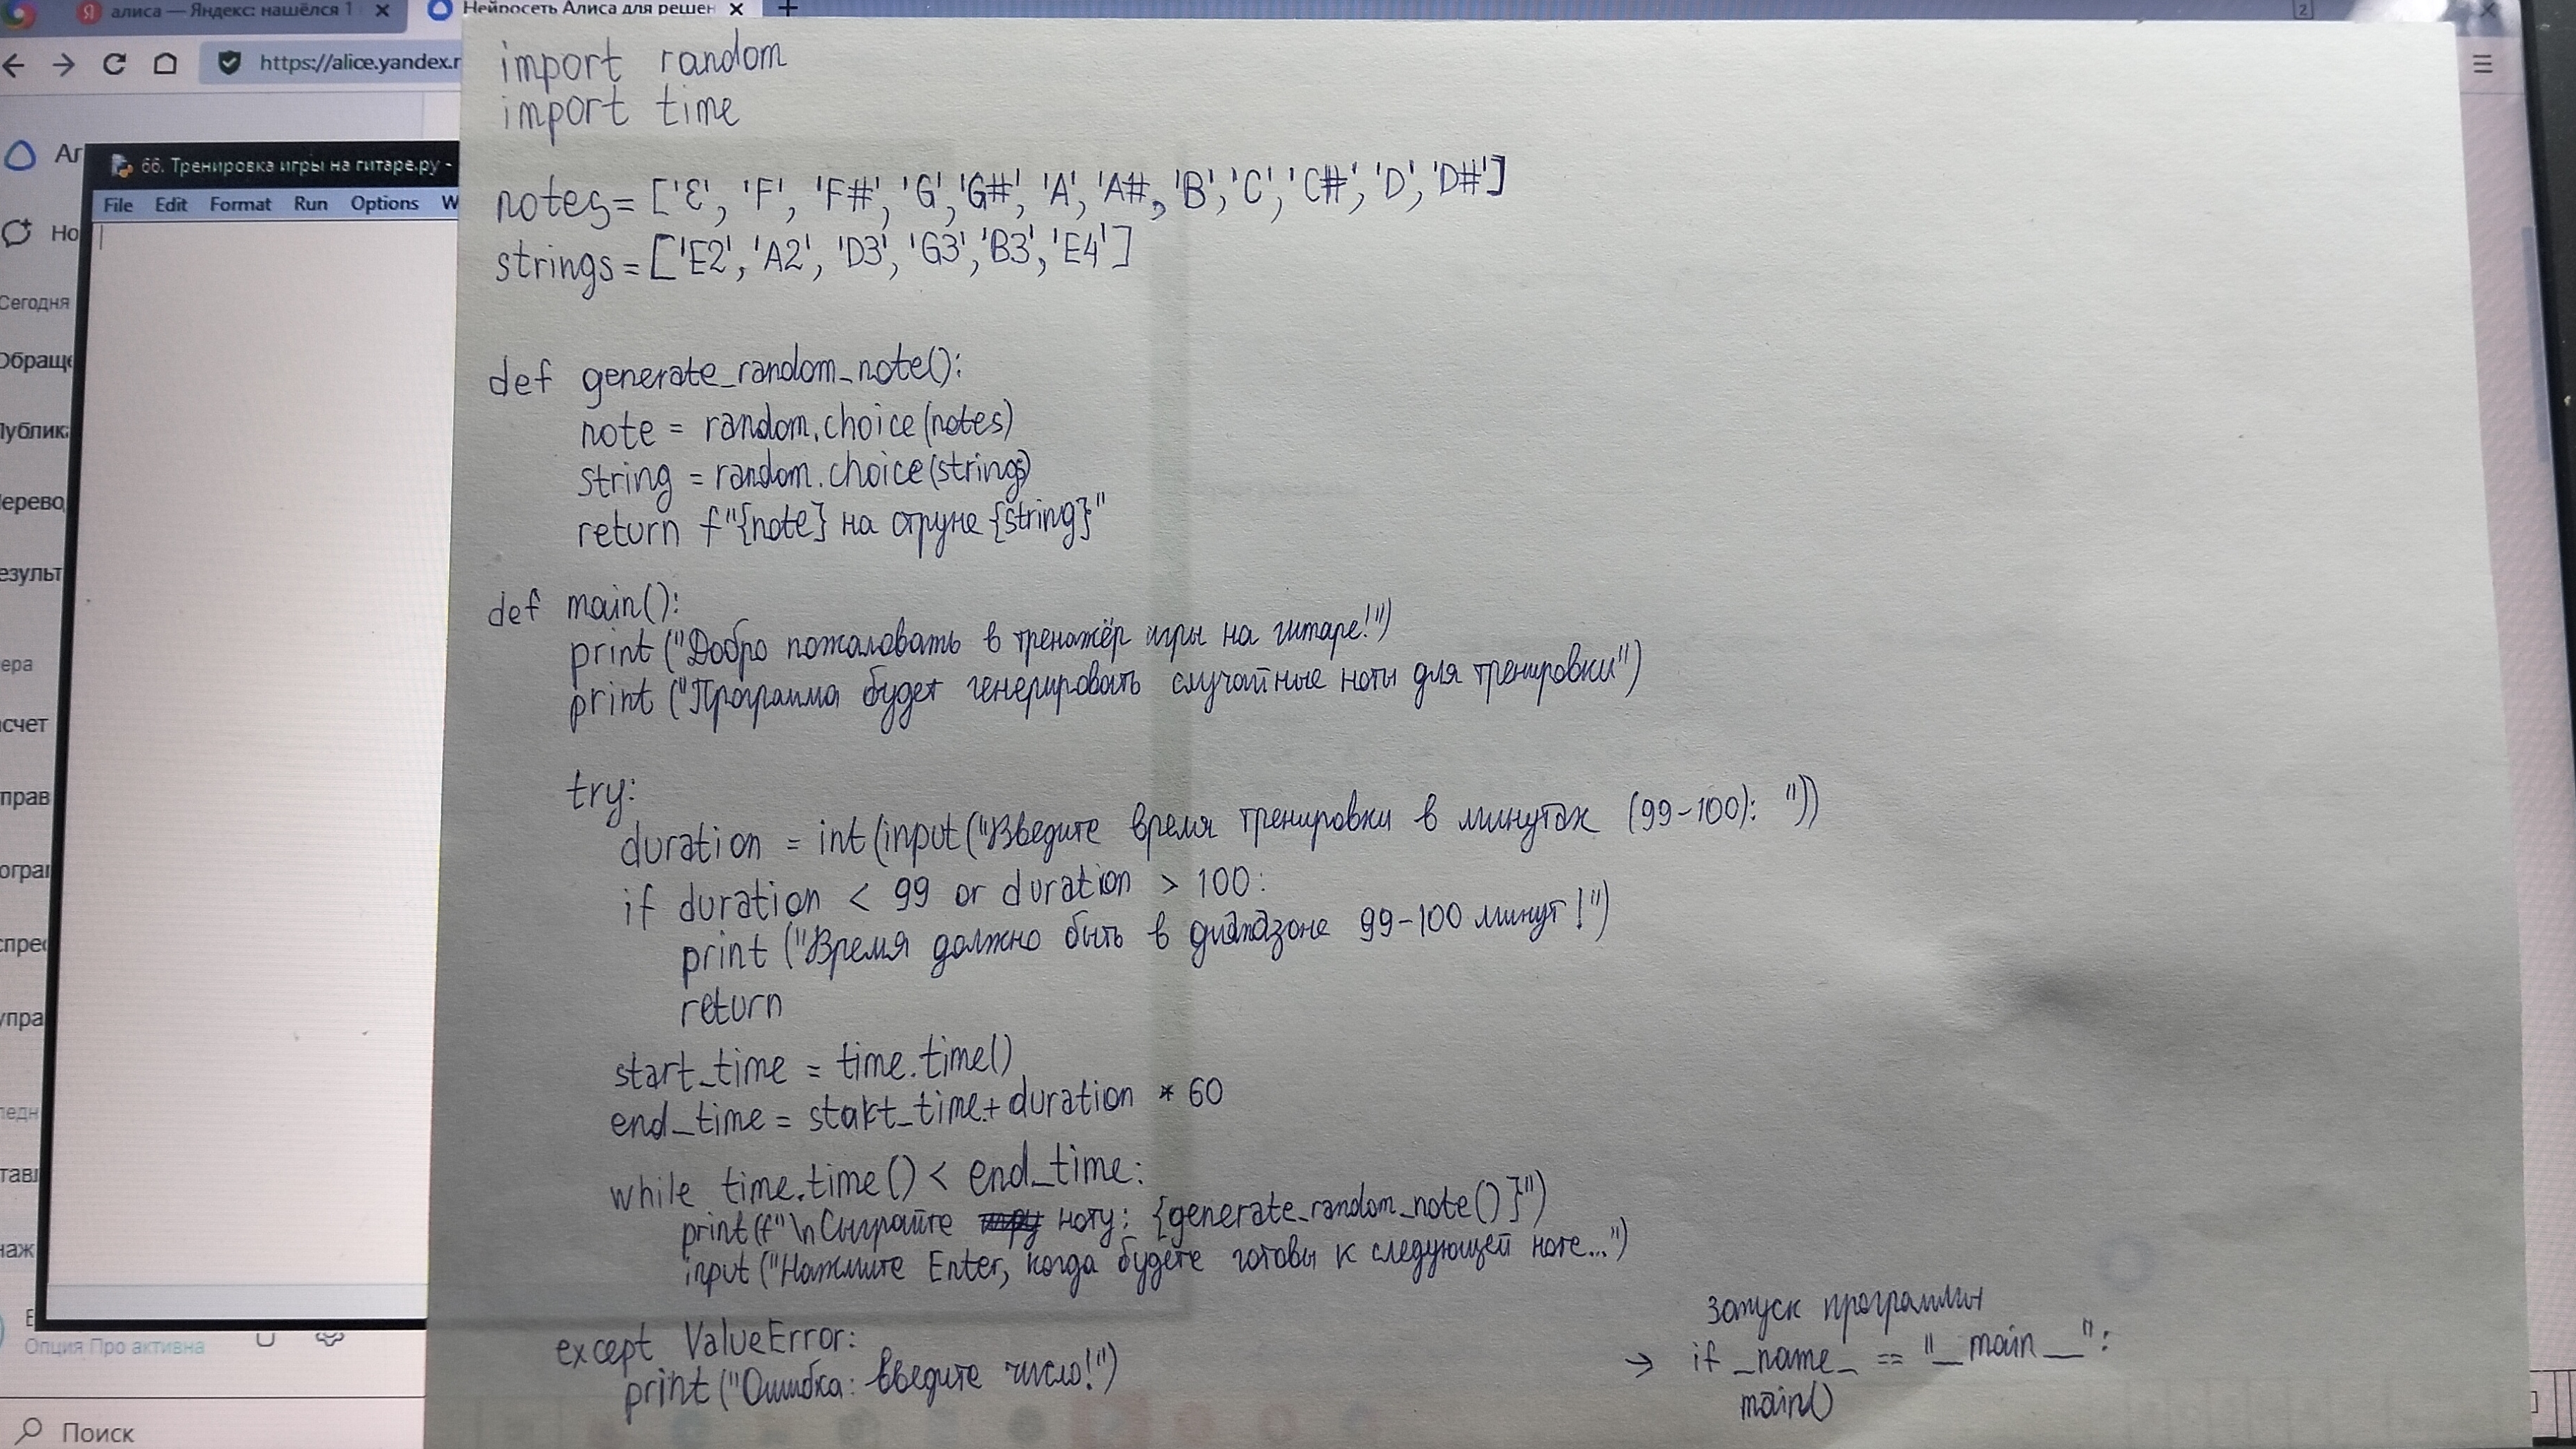 алиса — Яндекс: нашёлся 1
Нейросеть Алиса для решен
https://alice.yandex.r
66. Тренировка игры на гитаре.py -
File Edit Format Run Options W
Но
Сегодня
Обраще
Публик
Перевод
Результ
ера
счет
прав
ограм
спрес
упра
Опция Про активна
Поиск
2
import random
import time
notes= ['E', 'F', 'F#', 'G', 'G#', 'A', 'A#, 'B', 'C', 'C#', 'D', 'D#']
strings = ['E2', 'A2', 'D3', 'G3', 'B3', 'E4']
def generate_random_note():
note = random.choice(notes)
string = random.choice(strings)
return f"{note} на струне {string}"
def main():
print ("Добро пожаловать в тренажёр игры на гитаре!")
print ("Программа будет генерировать случайные ноты для тренировки")
try:
duration = int(input("Введите время тренировки в минутах (99-100): "))
if duration < 99 or duration > 100:
print ("Время должно быть в диапазоне 99-100 минут!")
return
start_time = time.time()
end_time = start_time + duration * 60
while time.time() < end_time:
print(f"\nСыграйте ноту: {generate_random_note()}")
input ("Нажмите Enter, когда будете готовы к следующей ноте...")
except ValueError:
print ("Ошибка: введите число!")
запуск программы
→ if _name_ == "__main__":
main()